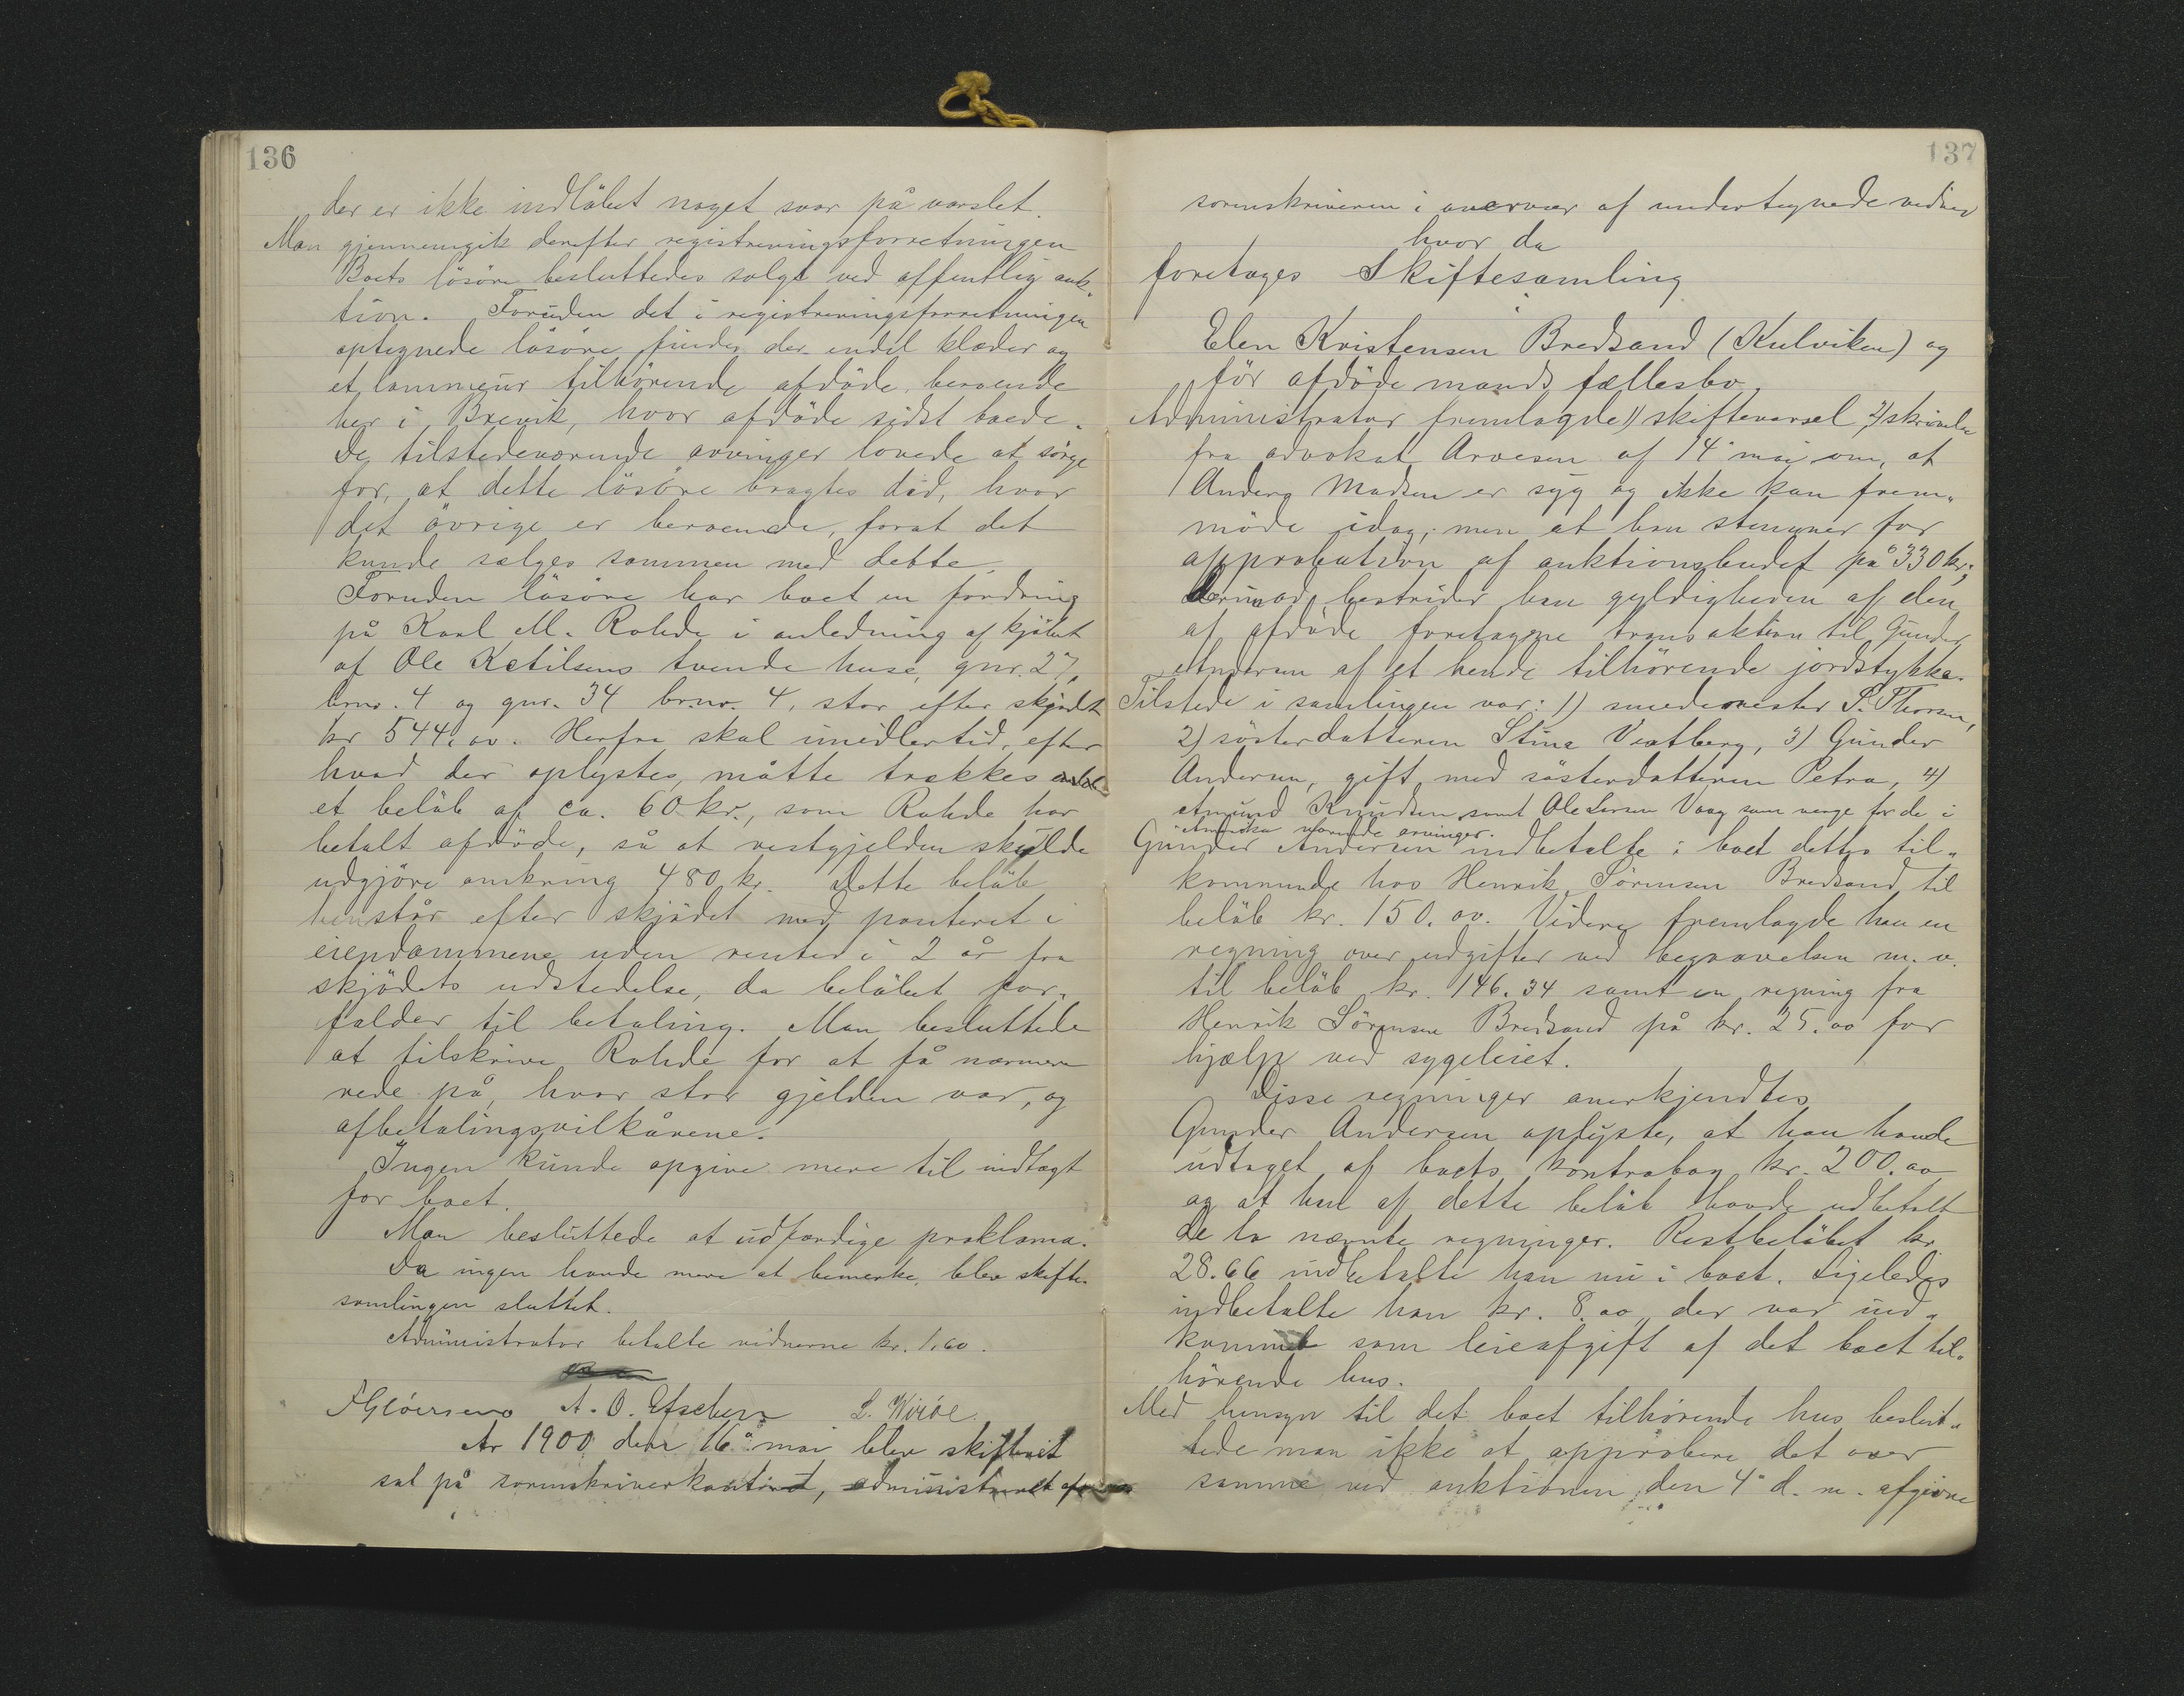 136
der er ikke indløbet noget svar på varslet.
Man gjennemgik derefter registreringsforretningen
Boets løsøre besluttedes solgt ved offentlig auk-
tion. Foruden det i registreringsforretningen
optegnede løsøre findes der endel klæder og
et lommeur tilhørende afdøde, beroende
her i Brevik, hvor afdøde sidst boede.
De tilstedeværende arvinger lovede at sørge
for, at dette løsøre bragtes did, hvor
det øvrige er beroende, forat det
kunde sælges sammen med dette.
Foruden løsøre har boet en fordring
på Karl M. Rohde i anledning af kjøbet
af Ole Ketilsens tvende huse, gnr. 27,
brno. 4 og gnr. 34 br.no. 4, stor efter skjødet
kr 544.00. Herfra skal imidlertid, efter
hvad der oplystes, måtte trækkes
et beløb af ca. 60 kr., som Rohde har
betalt afdøde, så at restgjelden skulde
udgjøre omkring 480 kr. Dette beløb
henstår efter skjødet med panteret i
eiendommene uden renter i 2 år fra
skjødets udstedelse, da beløbet for-
falder til betaling. Man besluttede
at tilskrive Rohde for at få nærmere
rede på, hvor stor gjelden var, og
afbetalingsvilkårene.
Ingen kunde opgive mere til indtægt
for boet.
Man besluttede at udfærdige proklama.
Da ingen havde mere at bemerke, blev skifte-
samlingen sluttet.
Administrator betalte vidnerne kr. 1.60.
A. O. L.
År 1900 den 16de mai blev skifteret
sat på sorenskriverkontoret, administreret af
137
sorenskriveren i overvær af undertegnede vidner
hvor da
foretoges Skiftesamling
i
Elen Kristensen Bredsand (Kulviken) og
før afdøde mands fællesbo.
Administrator fremlagde 1) skiftevarsel, 2) skrivelse
fra advokat Arvesen af 14de mai om, at
Anders Madsen er syg og ikke kan frem-
møde idag; men at han stemmer for
approbation af auktionsbudet på 330 kr.;
derimod bestrider han gyldigheden af den
af afdøde foretagne transaktion til Gunder
Andersen af et hende tilhørende jordstykke.
Tilstede i samlingen var: 1) smedemester P. Thorsen,
2) søsterdatteren Stina Vestberg, 3) Gunder
Andersen, gift med søsterdatteren Petra, 4)
Amund Knudsen samt Ole Larsen Vaag som verge for de i
Amerika værende arvinger.
Gunder Andersen indbetalte i boet dettes til-
kommende hos Henrik Sørensen Bredsand til
beløb kr. 150.00. Videre fremlagde han en
regning over udgifter ved begravelsen m. v.
til beløb kr. 146.34 samt en regning fra
Henrik Sørensen Bredsand på kr. 25.00 for
hjælp ved sygeleiet.
Disse regninger anerkjendtes
Gunder Andersen oplyste, at han havde
udtaget af boets kontrabog kr. 200.00
og at han af dette beløb havde udbetalt
de to nævnte regninger. Restbeløbet kr.
28.66 indbetalte han nu i boet. Ligeledes
indbetalte han kr. 8.00, der var ind-
kommet som leieafgift af det boet til-
hørende hus.
Med hensyn til det boet tilhørende hus beslut-
tede man ikke at approbere det over
samme ved auktionen den 4de d. m. afgivne